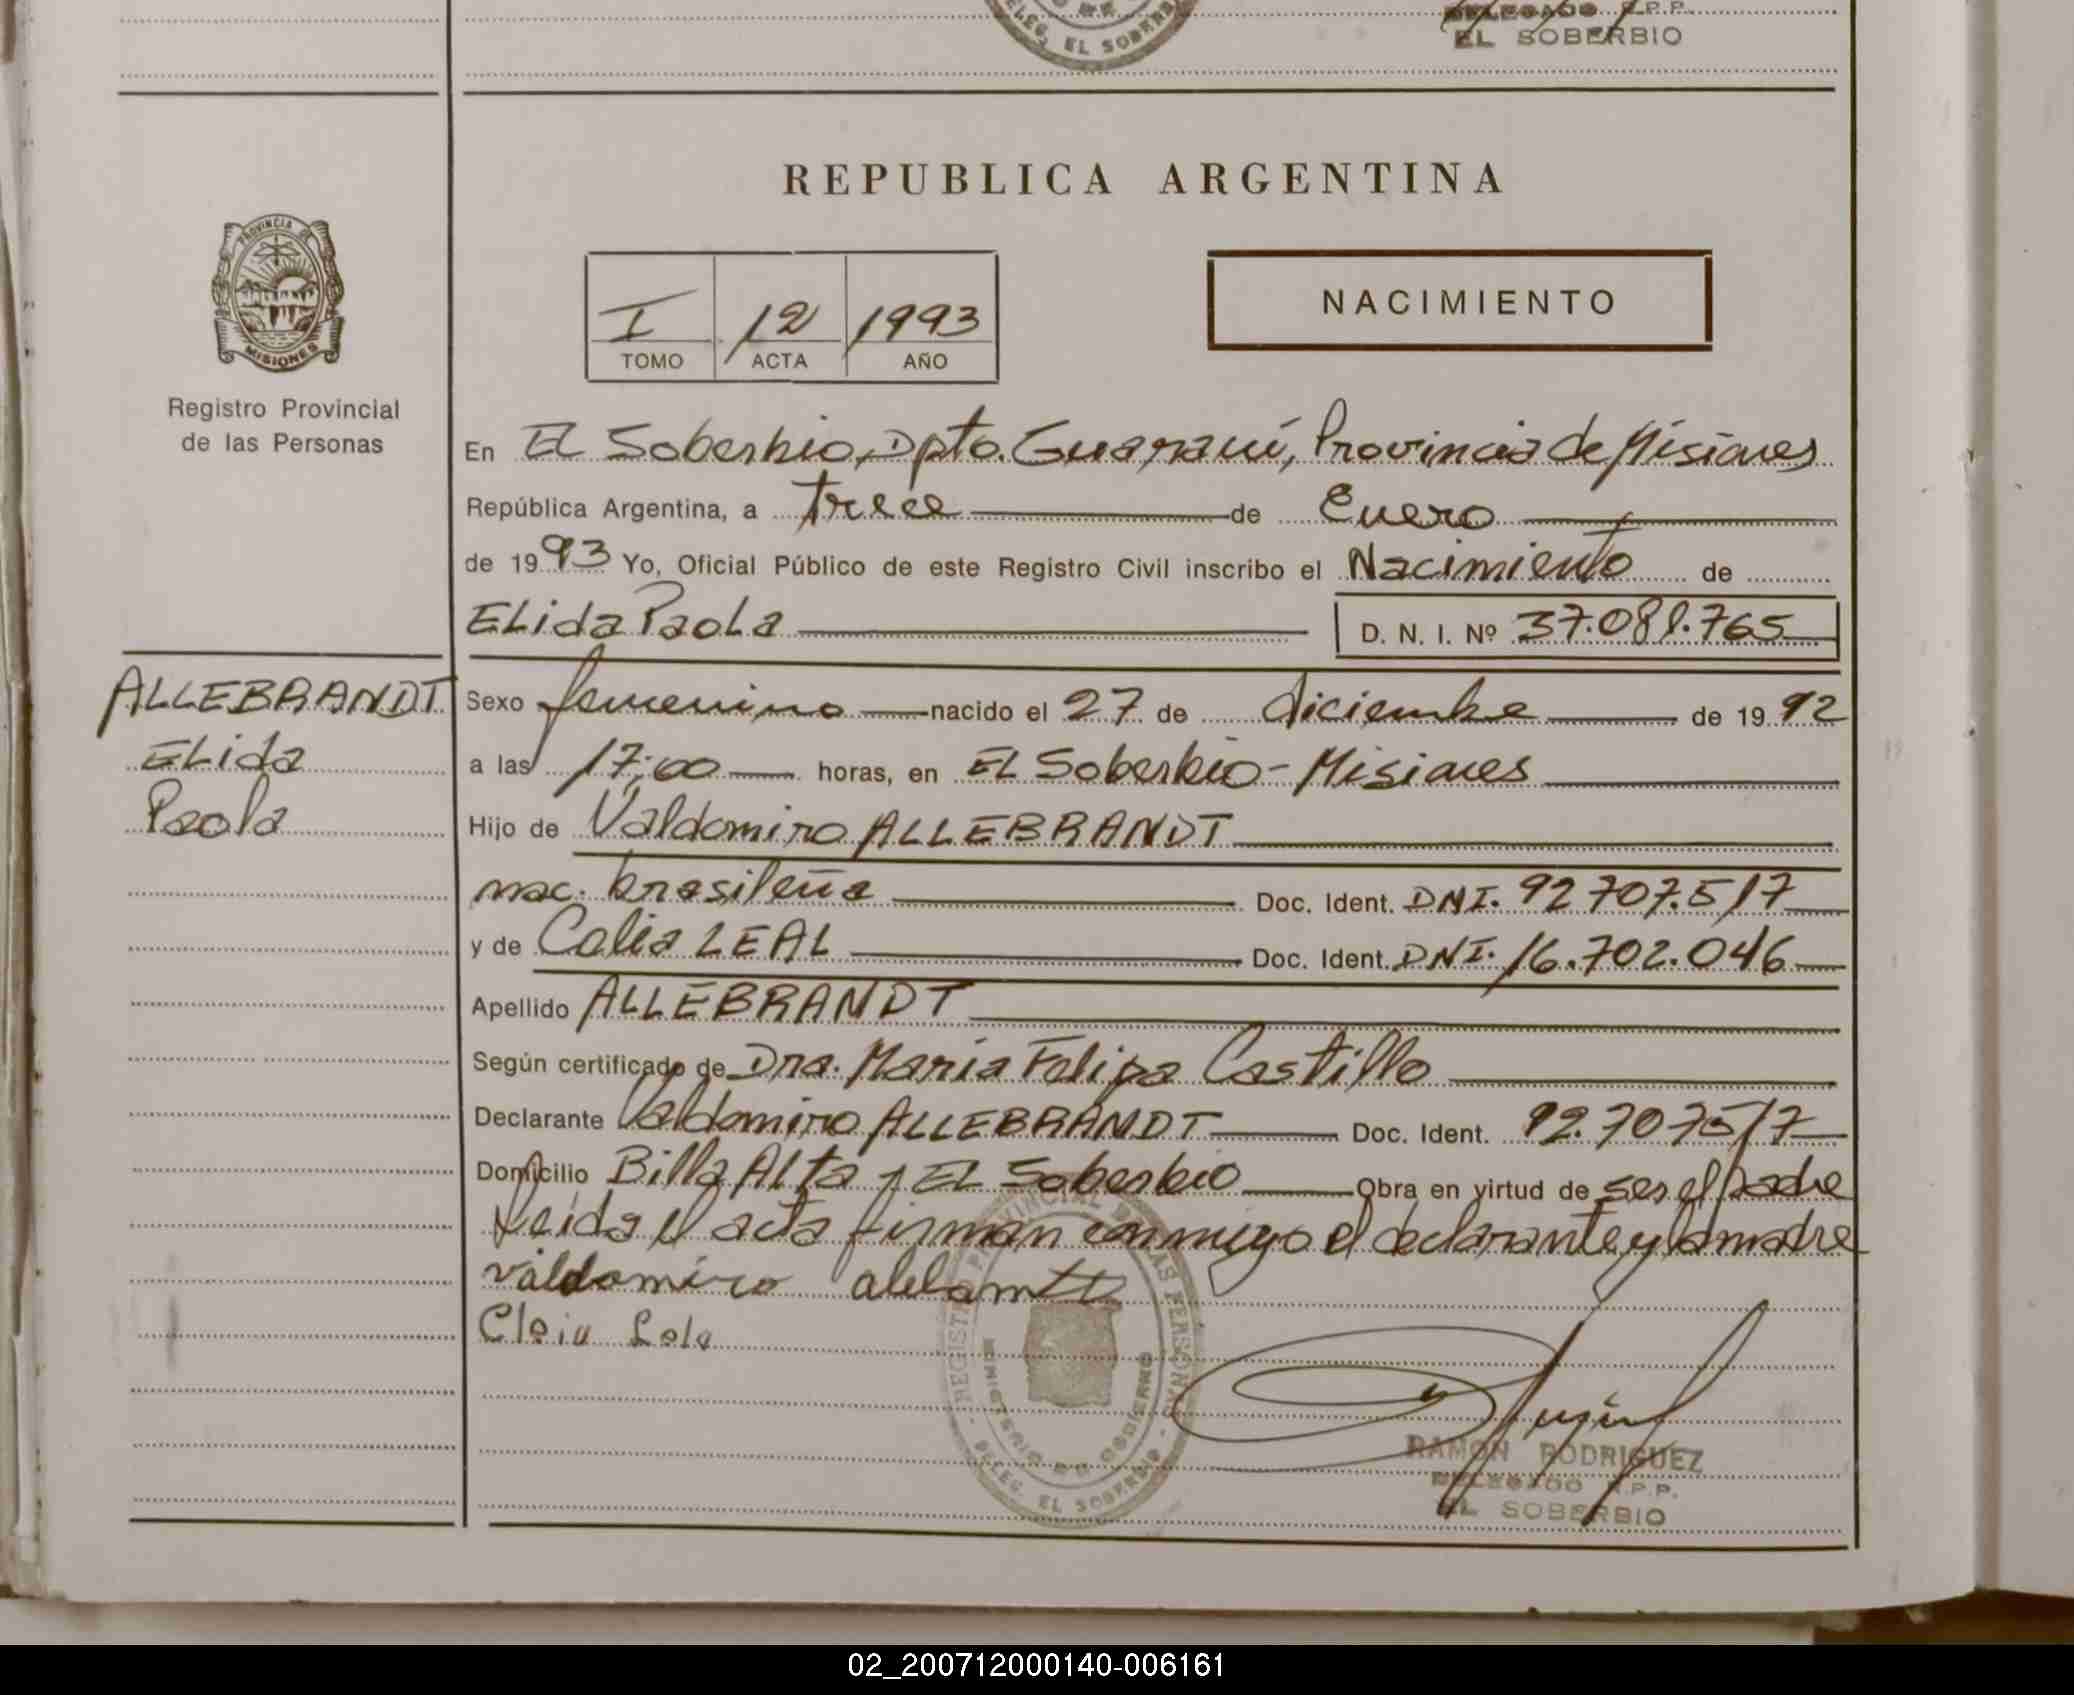 DELEGADO R.P.P.
DELEG. EL SOBERBIO
EL SOBERBIO
REPUBLICA ARGENTINA
PROVINCIA DE
MISIONES
NACIMIENTO
I 12 1993
TOMO ACTA AÑO
Registro Provincial
de las Personas
En EL Soberbio, Dpto. Guaraní, Provincia de Misiones
República Argentina, a trece de Enero
de 1993 Yo, Oficial Público de este Registro Civil inscribo el Nacimiento de
ELida Paola D. N. I. Nº 37.081.765
ALLEBRANDT
ELida
Paola
Sexo femenino nacido el 27 de diciembre de 1992
a las 17:00 horas, en EL Soberbio - Misiones
Hijo de Valdomiro ALLEBRANDT
nac. brasileña Doc. Ident. DNI. 92 707.517
y de Celia LEAL Doc. Ident. DNI. 16.702.046
Apellido ALLEBRANDT
Según certificado de Dra. María Felipa Castillo
Declarante Valdomiro ALLEBRANDT Doc. Ident. 92.707517
Domicilio Billa Alta, EL Soberbio Obra en virtud de ser el padre
Leida el acta firman conmigo el declarante y la madre
valdomiro
REGISTRO PROVINCIAL DE LAS PERSONAS
MINISTERIO DE GOBIERNO
DELEG. EL SOBERBIO
RAMON RODRIGUEZ
DELEGADO R.P.P.
EL SOBERBIO
02_200712000140-006161